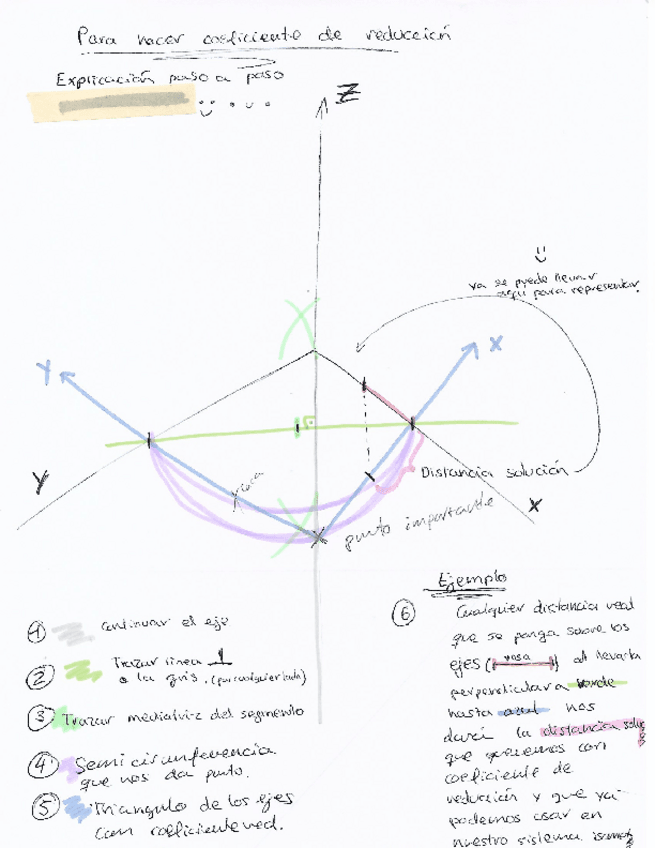 Para hacer coeficiente de reducción
Explicación paso a paso
Z
ya se puede llevar
aquí para representar.
Y
X
Y
X
Distancia solución
punto importante
Ejemplo
① continuar el eje
② Trazar línea ⊥
a la gris. (por cualquier lado)
③ Trazar mediatriz del segmento
④ Semicircunferencia
que nos da punto.
⑤ Triangulo de los ejes
con coeficiente red.
⑥ Cualquier distancia real
que se ponga sobre los
ejes (rosa) al llevarla
perpendicular a verde
hasta azul nos
dará la distancia
que queremos con
coeficiente de
reducción y que ya
podemos usar en
nuestro sistema